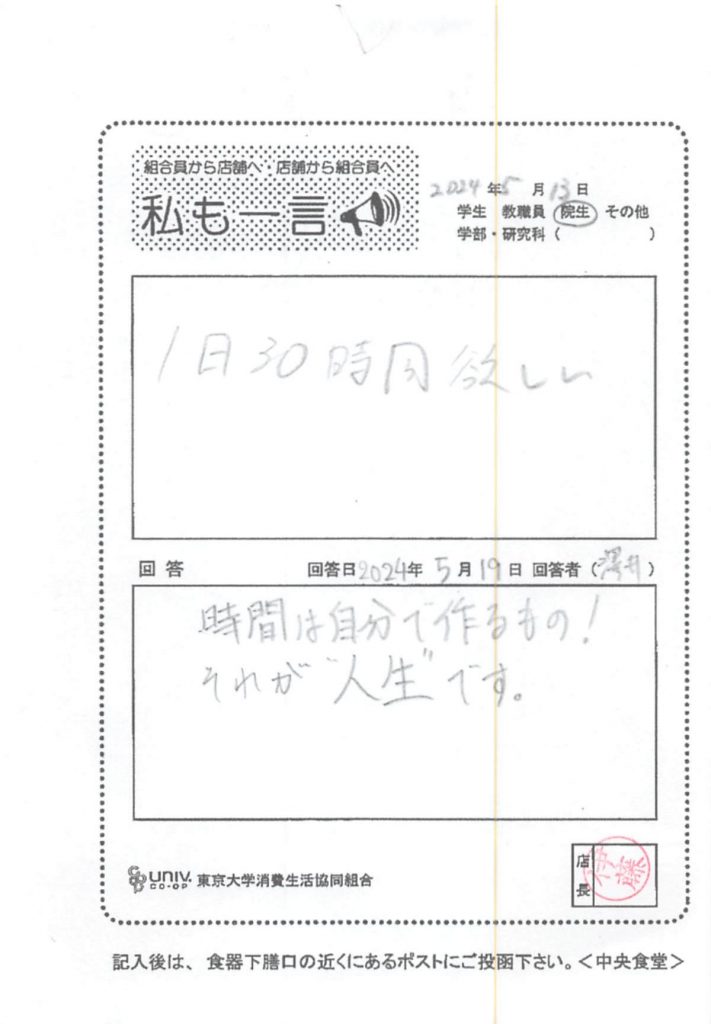 組合員から店舗へ・店舗から組合員へ
私も一言
2024年5月13日
学生 教職員 院生 その他
学部・研究科( )
1日30時間欲しい
回答 回答日2024年5月19日 回答者(澤井)
時間は自分で作るもの!
それが"人生"です。
UNIV. CO-OP 東京大学消費生活協同組合
店長 伊藤
記入後は、食器下膳口の近くにあるポストにご投函下さい。<中央食堂>